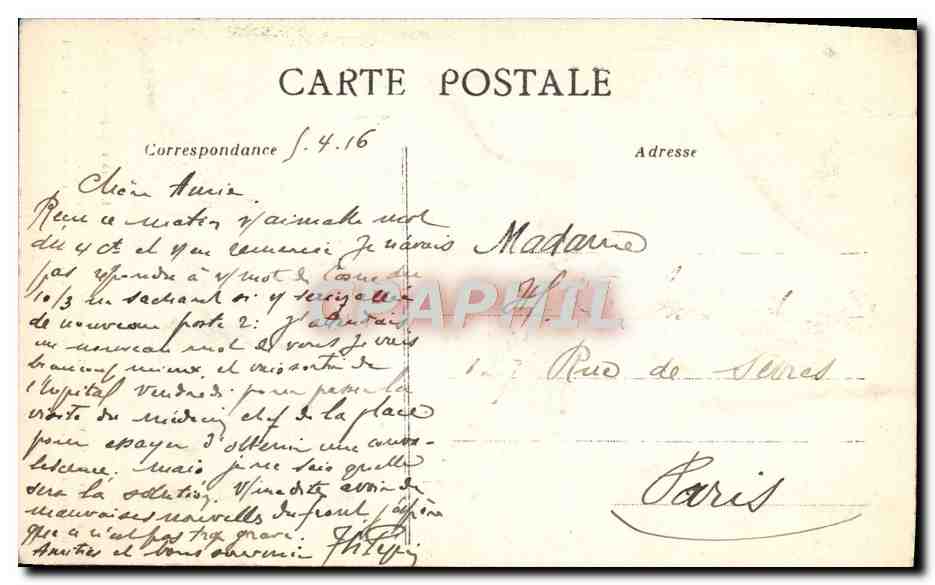 CARTE POSTALE
Correspondance 5.4.16
Adresse
Chère Amie
Reçu ce matin v/ aimable mot
du 4 ct et v/ en remercie Je n'avais
pas répondre à v/ mot de du
10/3 ne sachant si v/ seriez allée
de nouveau poste 2: J'attendais
un nouveau mot de vous Je vais
beaucoup mieux et vais sortir de
l'hopital Vendredi pour passer la
visite du médecin chef de la place
pour essayer d'obtenir une conva-
lescence. Mais je ne sais quelle
sera la solution. V/ me dites avoir de
mauvaises nouvelles du front j'espère
que ce n'est pas trop grave.
Amitiés et bons souvenirs
Madame
H.
Rue de Sevres
Paris
CPAPHIL